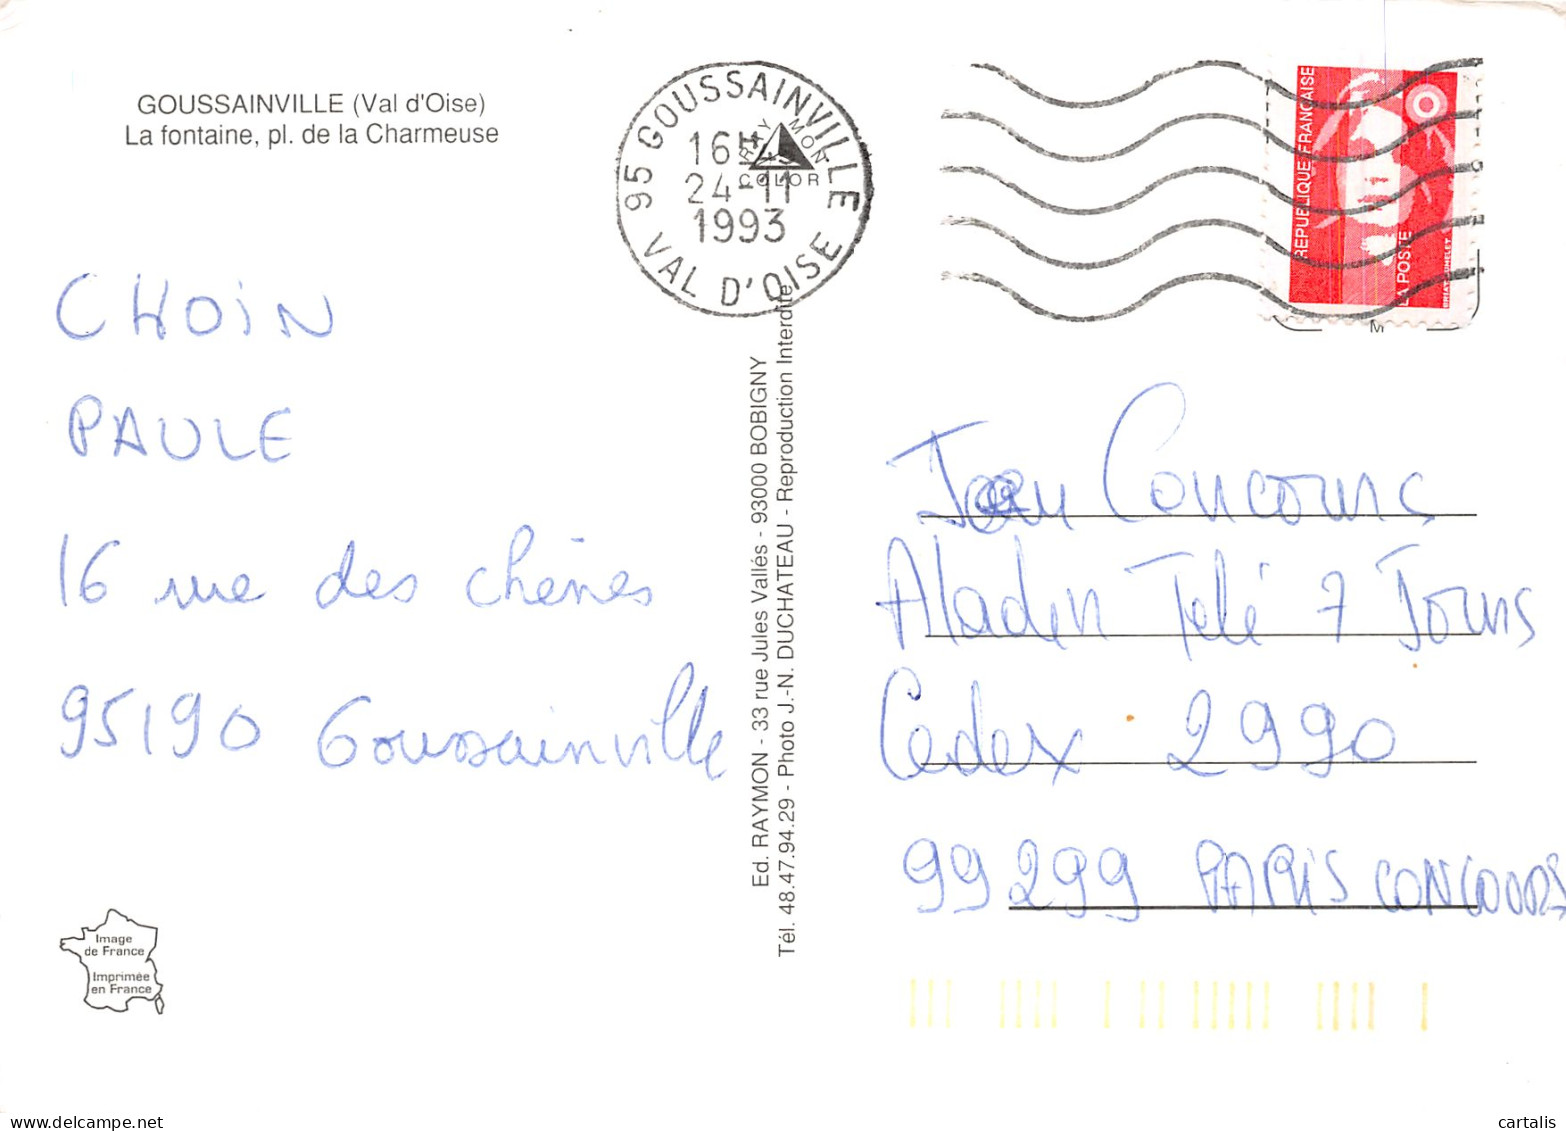 GOUSSAINVILLE (Val d'Oise)
La fontaine, pl. de la Charmeuse
95 GOUSSAINVILLE
16H
24-11
1993
VAL D'OISE
RAYMON
COLOR
REPUBLIQUE FRANÇAISE
LA POSTE
M
CHOIN
PAULE
16 rue des chênes
95190 Goussainville
Ed. RAYMON - 33 rue Jules Vallés - 93000 BOBIGNY
Tél. 48.47.94.29 - Photo J.-N. DUCHATEAU - Reproduction Interdite
Jeu Concours
Aladin Télé 7 Jours
Cedex 2990
99299 PARIS CONCOURS
Image
de France
Imprimée
en France
delcampe.net
cartalis